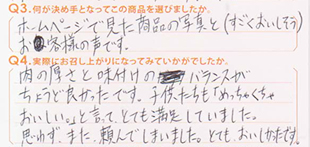 Q3. 何が決め手となってこの商品を選びましたか。
ホームページで見た商品の写真と(すごくおいしそう)
お客様の声です。
Q4. 実際にお召し上がりになってみていかがでしたか。
肉の厚さと味付けのバランスが
ちょうど良かったです。子供たちも「めっちゃくちゃ
おいしい。」と言って、とても満足していました。
思わず、また、頼んでしまいました。とても、おいしかったです。